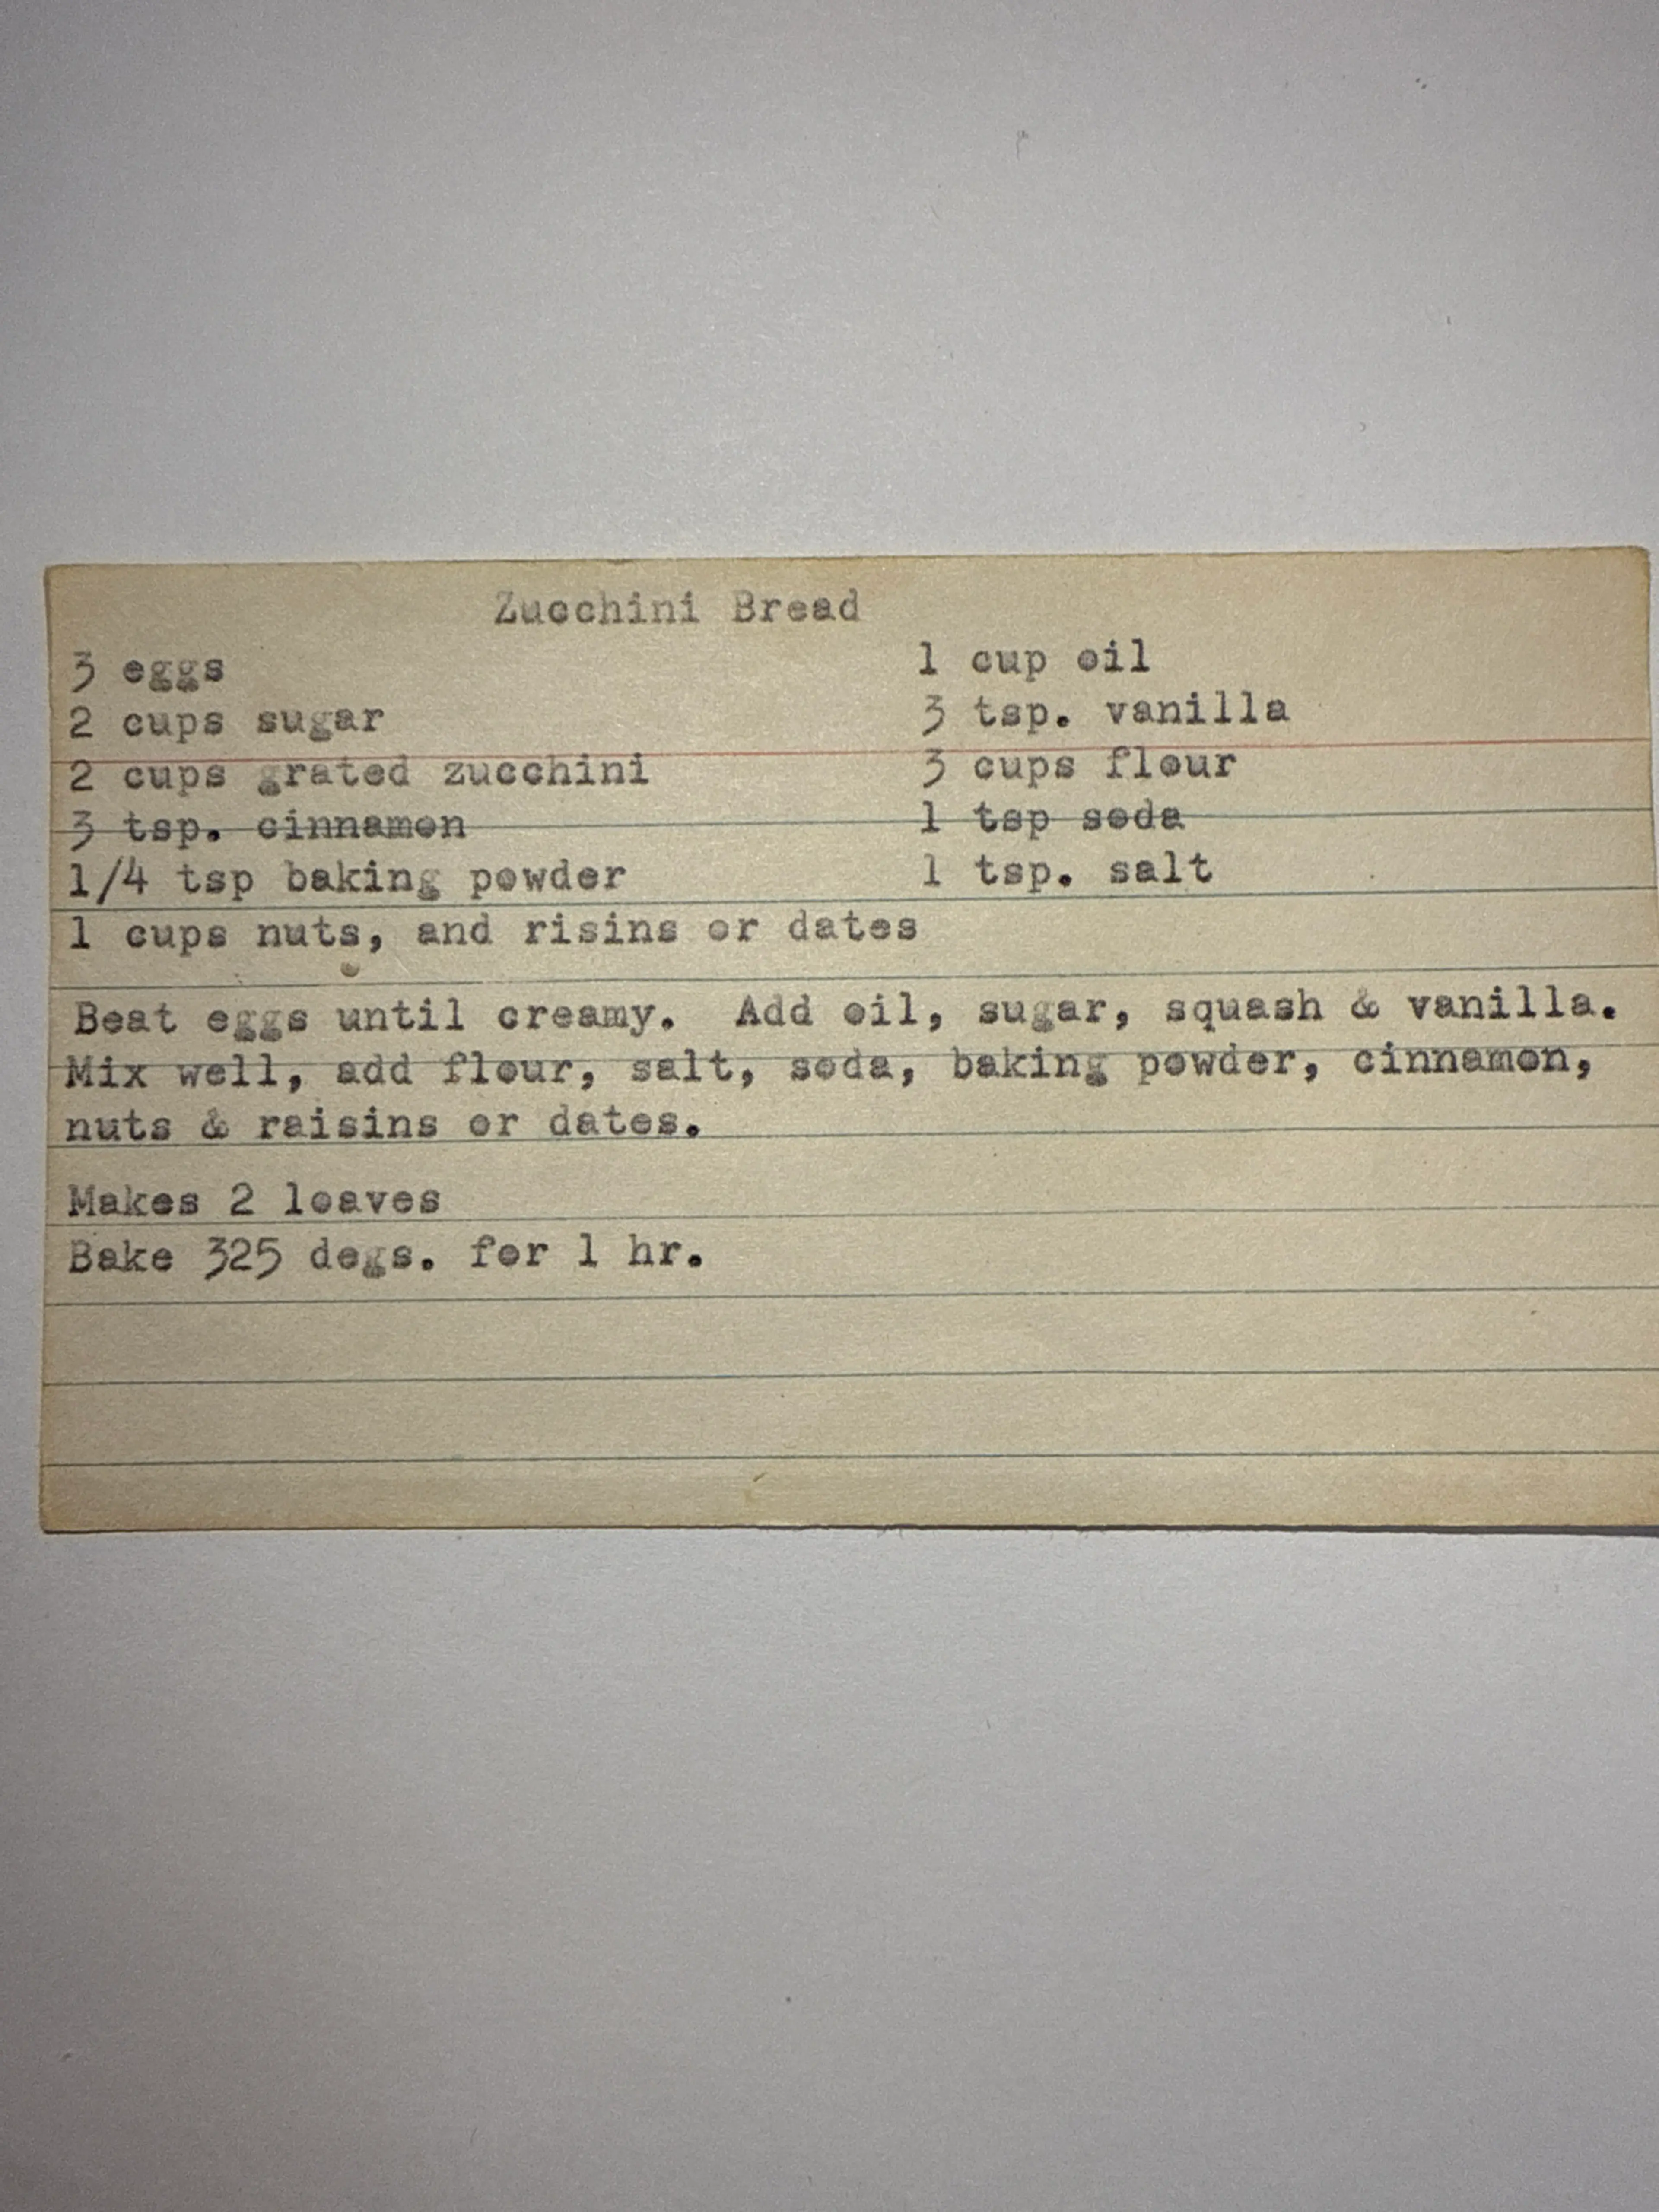 Zucchini Bread
3 eggs 1 cup oil
2 cups sugar 3 tsp. vanilla
2 cups grated zucchini 3 cups flour
3 tsp. cinnamon 1 tsp soda
1/4 tsp baking powder 1 tsp. salt
1 cups nuts, and risins or dates
Beat eggs until creamy. Add oil, sugar, squash & vanilla.
Mix well, add flour, salt, soda, baking powder, cinnamon,
nuts & raisins or dates.
Makes 2 loaves
Bake 325 degs. for 1 hr.